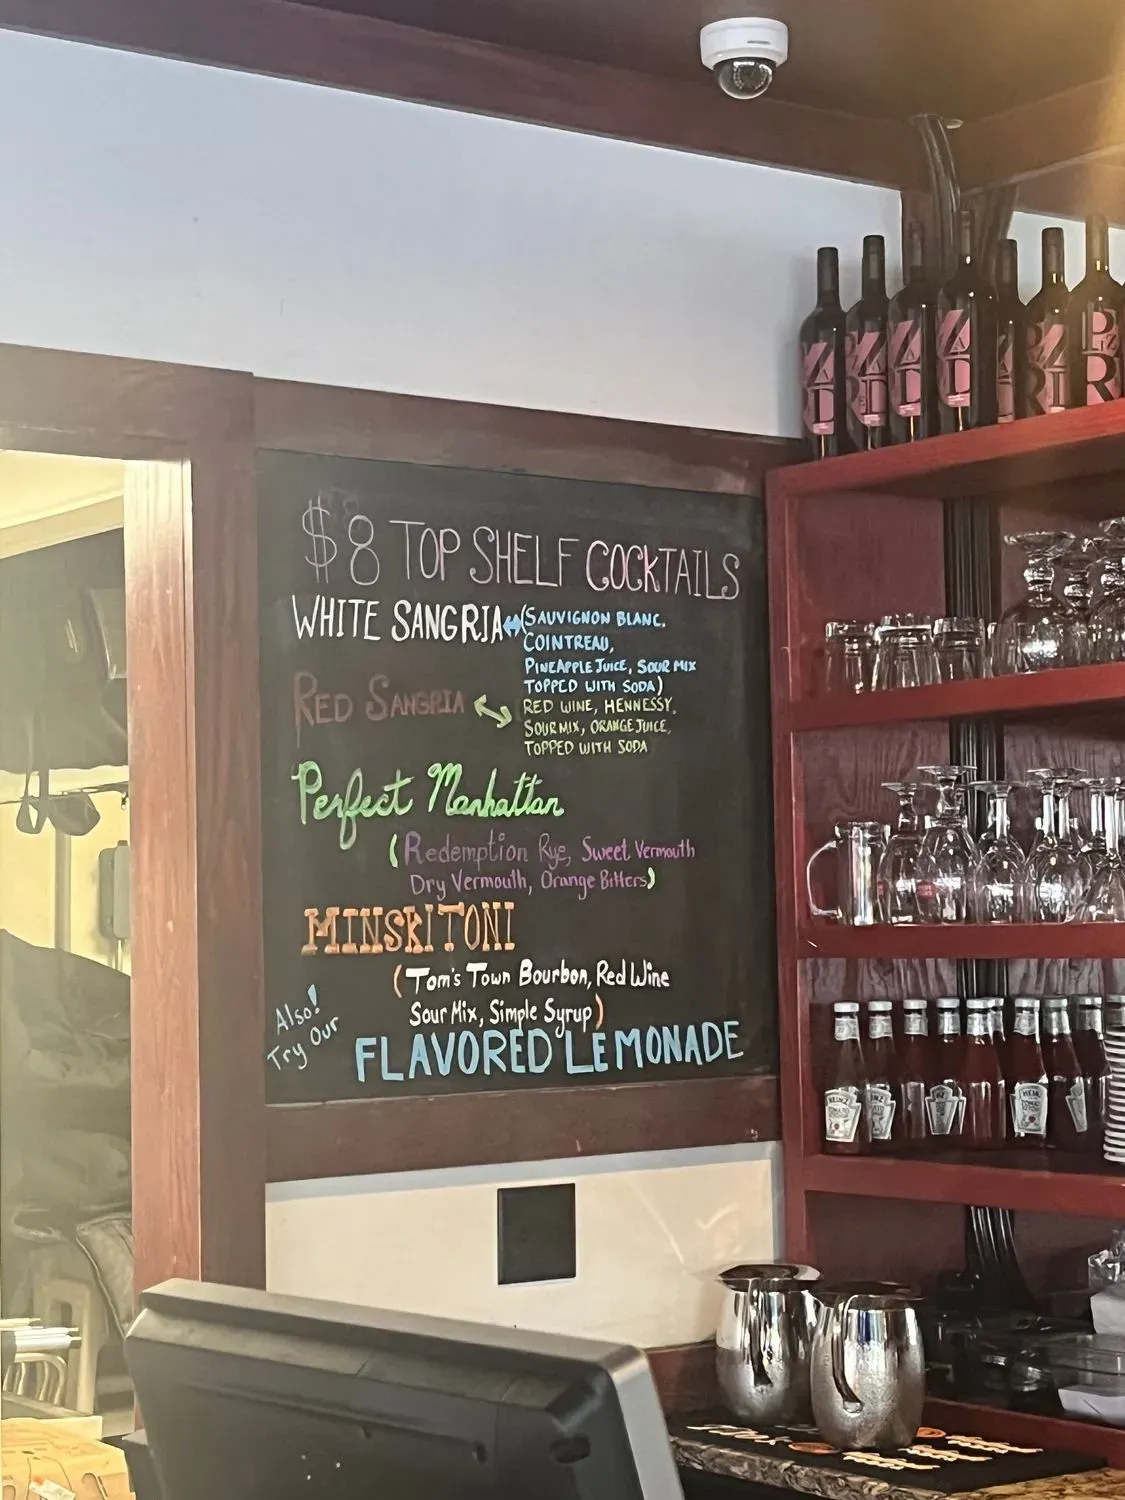 $8 TOP SHELF COCKTAILS
WHITE SANGRIA (SAUVIGNON BLANC.
COINTREAU,
PINEAPPLE JUICE, SOUR MIX
TOPPED WITH SODA)
RED SANGRIA RED WINE, HENNESSY,
SOUR MIX, ORANGE JUICE,
TOPPED WITH SODA
Perfect Manhattan
(Redemption Rye, Sweet Vermouth
Dry Vermouth, Orange Bitters)
MINSKITONI
(Tom's Town Bourbon, Red Wine
Sour Mix, Simple Syrup)
Also!
Try Our
FLAVORED LEMONADE
HEINZ
TOMATO